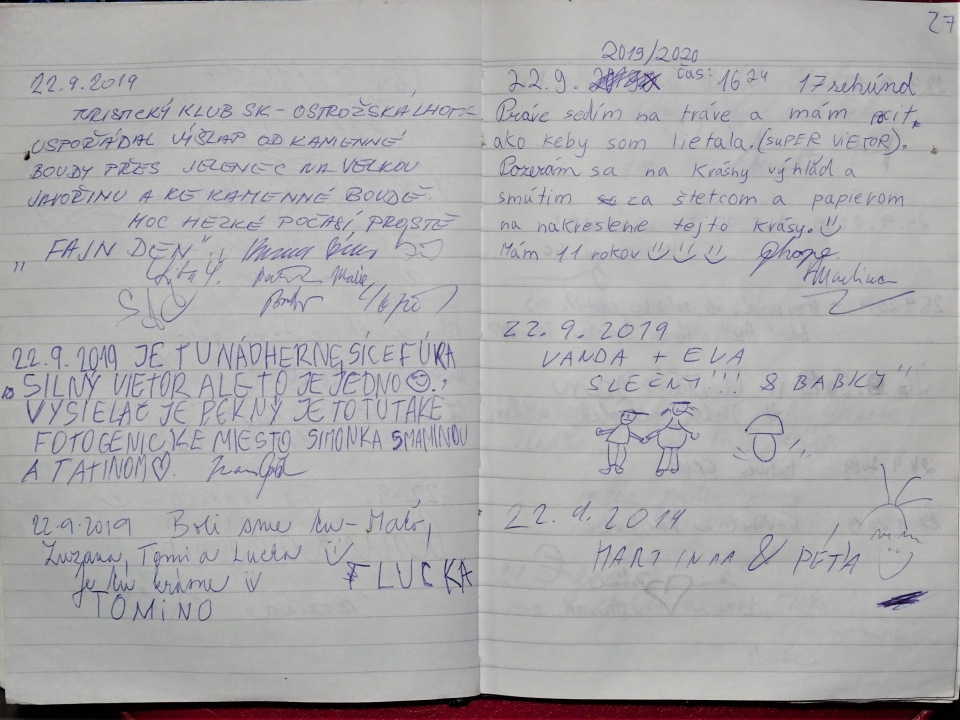 22.9.2019
TURISTICKÝ KLUB SK-OSTROŽSKÁ LHOTA
USPOŘÁDAL VÍŠLAP OD KAMENNÉ
BOUDY PŘES JELENEC NA VELKOU
JAVOŘINU A KE KAMENNÉ BOUDĚ.
MOC HEZKÉ POČASÍ, PROSTĚ
„FAJN DEN".
22.9.2019 JE TU NÁDHERNE, SÍCE FÚKA
SILNÝ VIETOR ALE TO JE JEDNO
VYSIELAČ JE PEKNÝ JE TO TU TAKÉ
FOTOGENICKÉ MIESTO SIMONKA S MAMINOU
A TATINOM♡.
22.9.2019 Boli sme tu - Maťo,
Zuzana, Tomi a Lucka
je tu krásne
LUCKA
TOMINO
27
2019/2020
22.9. čas: 16 24 17 sekúnd
Práve sedím na tráve a mám pocit,
ako keby som lietala. (SUPER VIETOR).
Pozerám sa na krásny výhľad a
smútim za štetcom a papierom
na nakreslenie tejto krásy.
Mám 11 rokov
Martina
22.9.2019
VANDA + EVA
SLEČNY!!! & BABKY
22.9.2019
MARTINA & PÉŤA